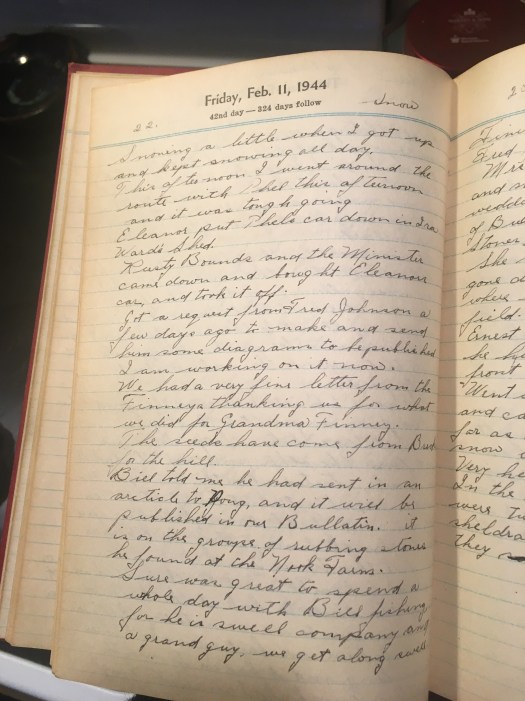 Friday, Feb. 11, 1944
42nd day — 324 days follow
22.
Snow
Snowing a little when I got up
and kept snowing all day.
This afternoon I went around the
route with Phel this afternoon
and it was tough going
Eleanor put Phels car down in Ira
Wards shed.
Rusty Bounds and the Minister
came down and bought Eleanors
car, and took it off.
Got a request from Fred Johnson a
few days ago to make and send
him some diagrams to be published
I am working on it now.
We had a very fine letter from the
Finneys thanking us for what
we did for Grandma Finney.
The seeds have come from Bud
for the hill.
Bill told me he had sent in an
article to Doug, and it will be
published in our Bullatin. it
is on the groups of rubbing stones
he found at the Nook Farms.
Sure was great to spend a
whole day with Bill fishing
for he is swell company and
a grand guy, we get along swell
Fred
and
of
Stones
She
gone
where
field.
Ernest
he
front
Went
and
for as
snow
Very
In the
were
sheldra
they